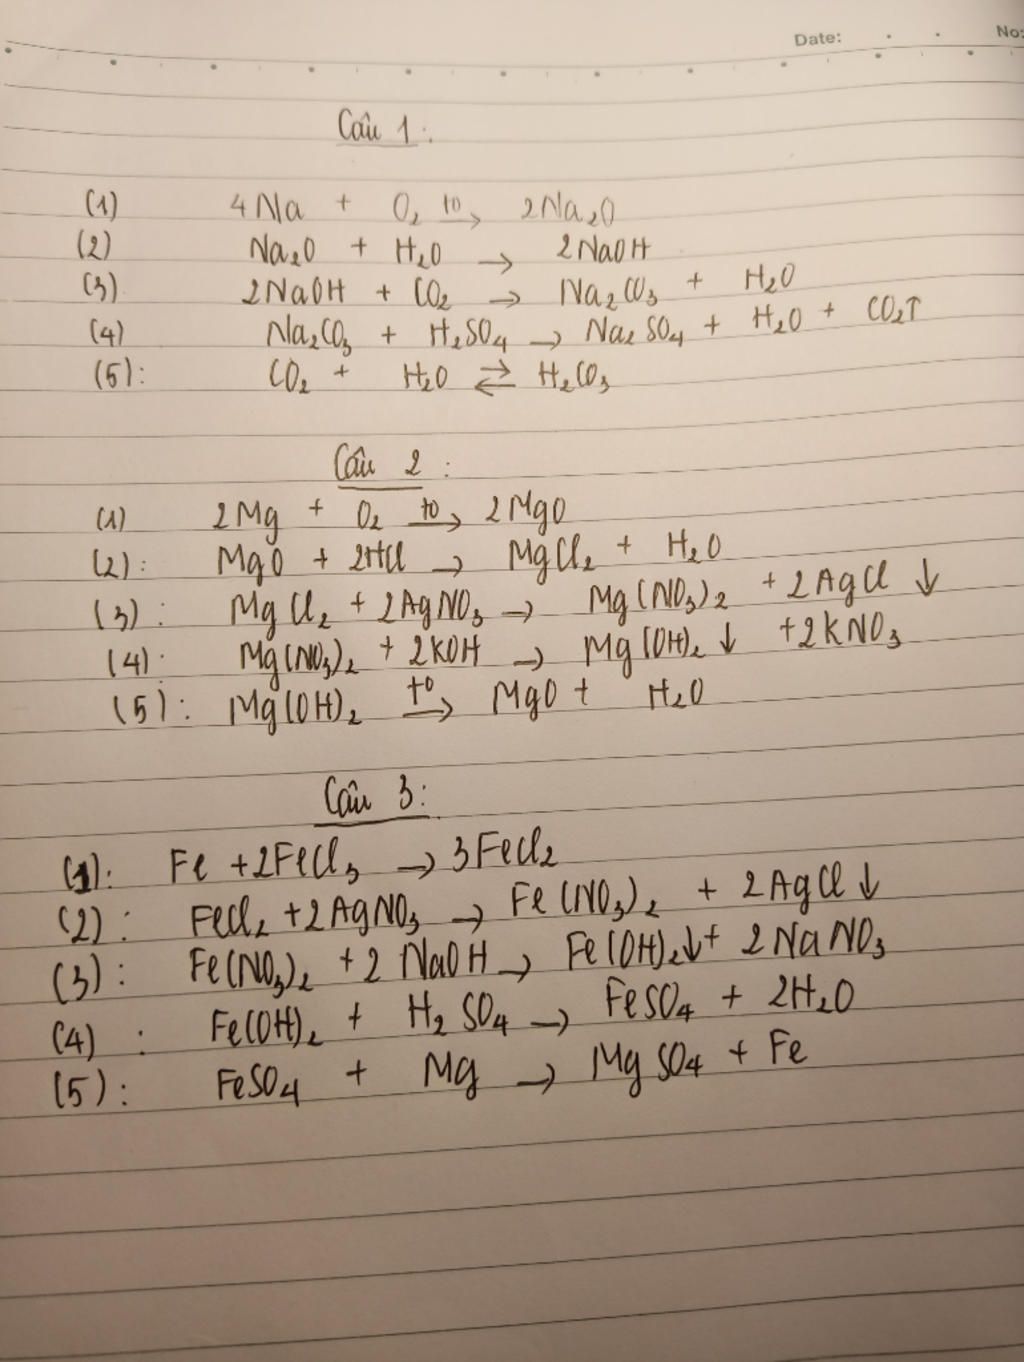 Date: No:
Câu 1:
(1) 4Na + O₂ t⁰→ 2Na₂O
(2) Na₂O + H₂O → 2NaOH
(3) 2NaOH + CO₂ → Na₂CO₃ + H₂O
(4) Na₂CO₃ + H₂SO₄ → Na₂SO₄ + H₂O + CO₂↑
(5): CO₂ + H₂O ⇌ H₂CO₃
Câu 2:
(1) 2Mg + O₂ t⁰→ 2MgO
(2): MgO + 2HCl → MgCl₂ + H₂O
(3): MgCl₂ + 2AgNO₃ → Mg(NO₃)₂ + 2AgCl ↓
(4): Mg(NO₃)₂ + 2KOH → Mg(OH)₂ ↓ + 2KNO₃
(5): Mg(OH)₂ t⁰→ MgO + H₂O
Câu 3:
(1): Fe + 2FeCl₃ → 3FeCl₂
(2): FeCl₂ + 2AgNO₃ → Fe(NO₃)₂ + 2AgCl ↓
(3): Fe(NO₃)₂ + 2NaOH → Fe(OH)₂↓ + 2NaNO₃
(4): Fe(OH)₂ + H₂SO₄ → FeSO₄ + 2H₂O
(5): FeSO₄ + Mg → MgSO₄ + Fe